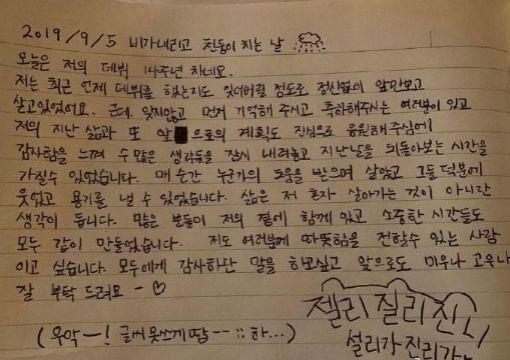 2019/9/5 비가내리고 천둥이 치는 날
오늘은 저의 데뷔 14주년 차네요.
저는 최근 언제 데뷔를 했는지도 잊어버릴 정도로 정신없이 앞만보고
살고있었어요. 근데, 잊지않고 먼저 기억해 주시고 축하해주시는 여러분이 있고
저의 지난 삶과 또 앞으로의 계획도 진심으로 응원해 주심에
감사함을 느껴 수 많은 생각들을 잠시 내려놓고 지난날을 뒤돌아보는 시간을
가질수 있었습니다. 매 순간 누군가의 도움을 받으며 살았고 그들 덕분에
웃었고 용기를 낼 수 있었습니다. 삶은 저 혼자 살아가는 것이 아니란
생각이 듭니다. 많은 분들이 저의 곁에 함께 있고 소중한 시간들도
모두 같이 만들었습니다. 저도 여러분께 따뜻함을 전할수 있는 사람
이고 싶습니다. 모두에게 감사하단 말을 하고싶고 앞으로도 미우나 고우나
잘 부탁 드려요 ~ ♡
(우악ㅡ! 글씨 못쓰게땁ㅡㅡ;; 하...)
젤리 질리 진니
설리가 진리가